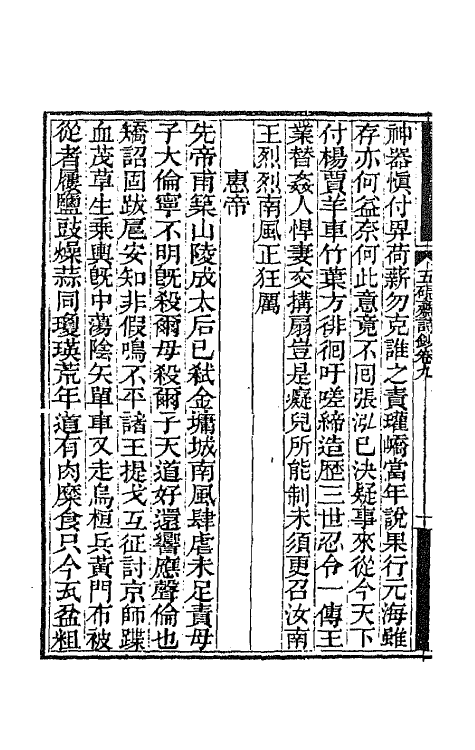 五硯齋詩鈔卷九
神器愼付畀荷薪勿克誰之責瓘嶠當年說果行元海雖
存亦何益奈何此意竟不囘張泓已決疑事來從今天下
付楊賈羊車竹葉方徘徊吁嗟締造歷三世忍令一傳王
業替姦人悍妻交搆扇豈是癡兒所能制未須更召汝南
王烈烈南風正狂厲
惠帝
先帝甫築山陵成太后已弒金墉城南風肆虐未足責毋
子大倫寧不明旣殺爾毋殺爾子天道好還響應聲倫也
矯詔固跋扈安知非假鳴不平諸王提戈互征討京師蹀
血茂草生乘輿旣中蕩陰矢單車又走烏桓兵黃門布被
從者屨鹽豉燥蒜同瓊瑛荒年道有肉糜食只今瓦盆粗